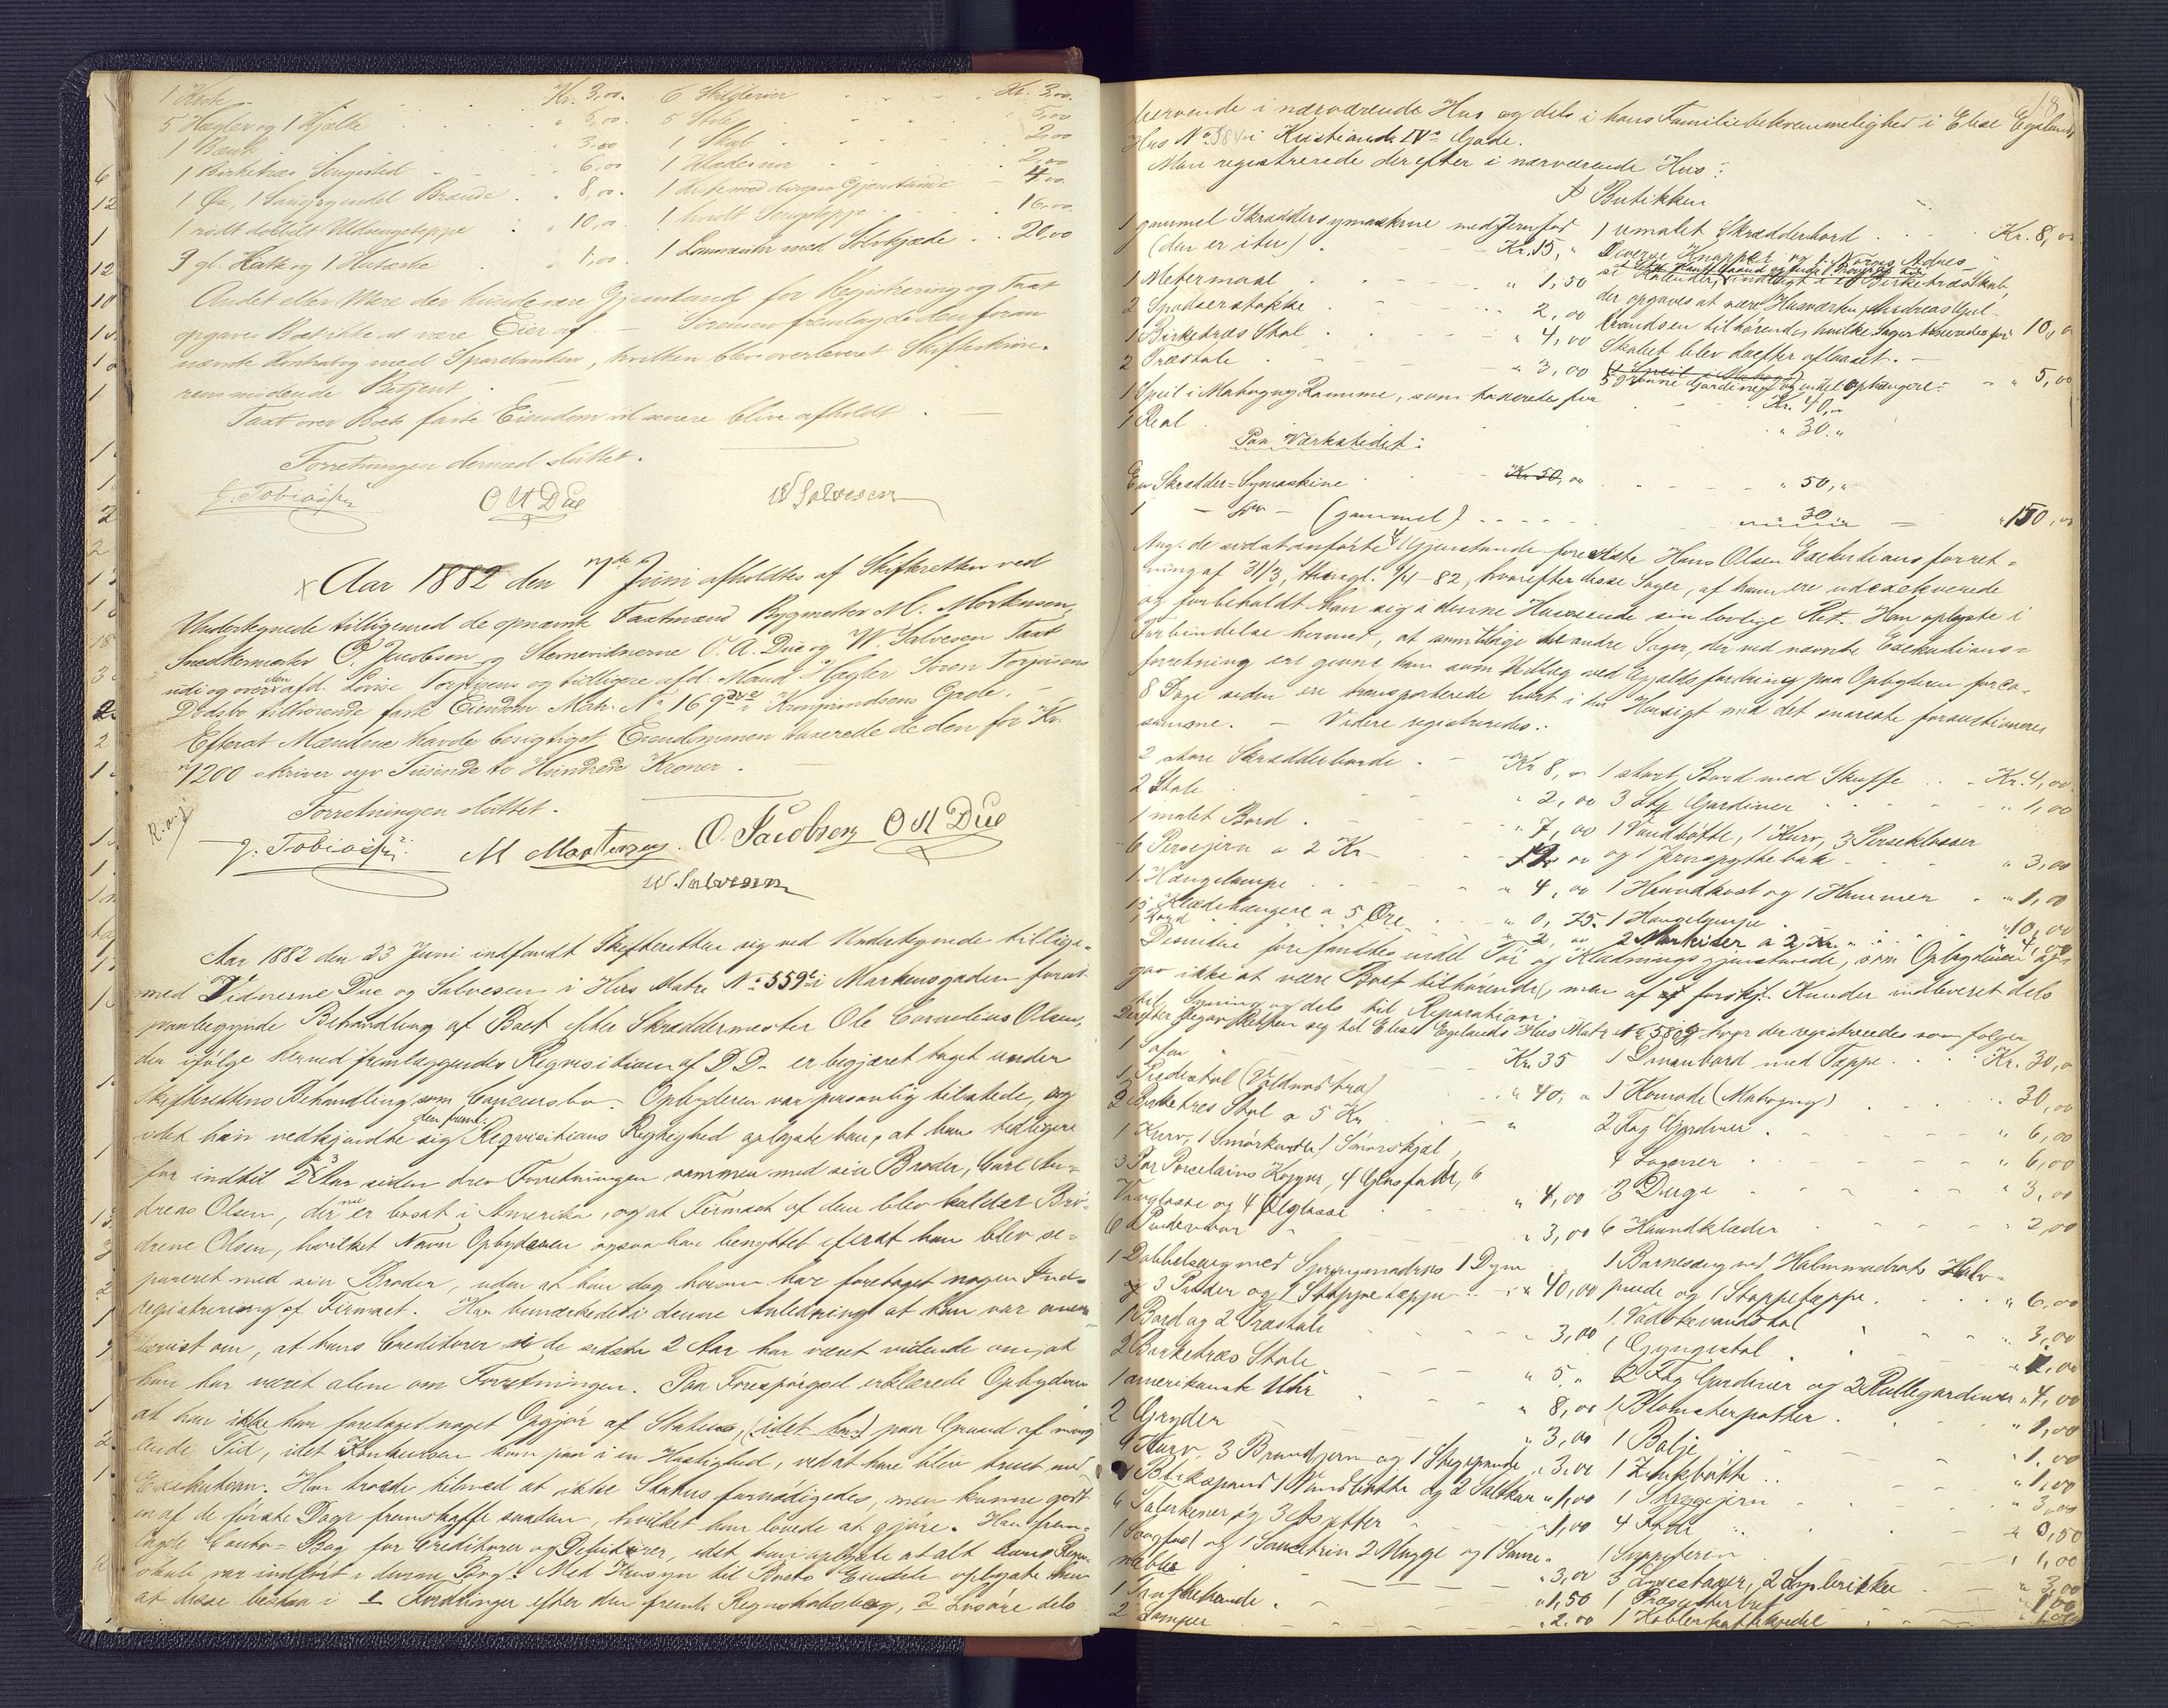 1 Kiste . . . Kr. 3,00. 6 Skilderier . . . Kr. 3,00.
5 Hægler og 1 Kjælke . . . " 5,00. 5 Stole . . . 5,00
1 Bænk . . . 3.00 1 Skab . . . 2,00
1 Birketræs Sengested . . . " 6,00 1 Klædesnor . . . 2,00
1 Øx, 1 Saug og endel Brænde . . " 8,00. 1 Kiste med diverse Gjenstande 4,00.
1 rødt dobbelt Uldsengeteppe . . " 10,00 1 hvidt Sengeteppe . . . 16,00.
3 gl. Hatte og 1 Hatæske . . . " 1,00. 1 Lommeuhr med Sølvkjæde . . 20,00
Andet eller Mere der kunde være Gjenstand for Registrering og Taxt
opgaves Boet ikke at være Eier af. — Sørensen fremlagde den foran
nævnte Kontrabog med Sparebanken, hvilken blev overleveret Skifteskrive-
rens mødende Betjent.
Taxt over Boets faste Eiendom vil senere blive afholdt.
Forretningen dermed sluttet.
J. Tobiassen O A Due W Salvesen
Aar 1882 den Juni afholdtes af Skifteretten ved
Undertegnede tilligemed de opnævnte Taxtmænd Bygmester M. Mortensen,
Snedkermester O. Jacobsen og Stemevidnerne O. A. Due og W. Salvesen Taxt
udi og over den afd. Lovise Torjusens og tidligere afd. Mand Hægler Søren Torjusens
Dødsbo tilhørende faste Eiendom Matr. No 169 i Kronprindsens Gade. —
Efterat Mændene havde besigtiget Eiendommen taxerede de den for Kr.
7200 skriver syv Tusinde to Hundrede Kroner.
Forretningen sluttet.
J. Tobiassen M Mortensen. O. Jacobsen O A Due
W. Salvesen
Aar 1882 den 23 Juni indfandt Skifteretten sig ved Undertegnede tillige-
med Vidnerne Due og Salvesen i Hus Matr. No 559 i Markensgaden forat
paabegynde Behandling af Boet efter Skræddermester Ole Cornelius Olsen,
der ifølge hermed fremlæggendes Requisition af D.D. er begjæret taget under
Skifterettens Behandling som Concursbo. Opbyderen var personlig tilstede, og
idet han vedkjendte sig den freml. Reqvisitions Rigtighed oplyste han, at han tidligere
for indtil 2 Aar siden drev Forretningen sammen med sin Broder, Carl An-
dreas Olsen, der nu er bosat i Amerika, og at Firmaet af dem blev kaldet Brø-
drene Olsen, hvilket Navn Opbyderen ogsaa har benyttet efterat han blev se-
pareret med sin Broder, uden at han dog herom har foretaget nogen Ind-
registrering af Firmaet. Han bemærkede i denne Anledning at han var over-
bevist om, at hans Creditorer i de sidste 2 Aar har været vidende om, at
han har været alene om Forretningen. Paa Forespørgsel erklærede Opbyderen
at han ikke har foretaget noget Opgjør af Status, (idet han) paa Grund af mang-
lende Tid, idet Konkursen kom paa i en Hastighed, ved at han blev truet med
Exekution. Han troede tilmed at ikke Status fornødigedes, men kunne godt
en af de første Dage fremskaffe saadan, hvilket han lovede at gjøre. Han frem-
lagde Conto-Bog for Creditorer og Debitorer, idet han oplyste at alt hans Regn-
skab var indført i denne Bog. Med Hensyn til Boets Eiendele oplyste han
at disse bestaa i 1 Fordringer efter den freml. Regnskabsbog, 2 Løsøre dels
18
beroende i nærværende Hus og dels i hans Familiebekvemmelighed i Elise Egelands
Hus No 58 i Kristiands IV Gade.
Man registrerede derefter i nærværende Hus:
I Butikken
1 gammel Skræddersymaskine med Jernfod 1 umalet Skrædderbord . . . Kr. 8,00
(den er itu) . . . Kr. 15, " Diverse Knapper og
1 Metermaal . . . " 1,50 indlagt i et Birketræs Skab,
2 Spadserstokke . . . 2,00 der opgaves at være Husværten Andreas
1 Birketræs Stol . . . " 4,00 tilhørende, hvilke Sager taxeredes for 10,00
2 Træstole . . . " 3,00 Skabet blev derefter aflaaset. —
1 Speil i Mahogny Ramme, som taxeredes for 5 grønne Gardiner og endel Ophængere: " 5,00
Kr. 40,00
1 Real . . . " 30. "
Paa Værkstedet:
En Skrædder-Symaskine . . . Kr 50,00 . . . " 50, "
1 — Do — (gammel) . . . 30 — " 150,00
Ang. de sidstanførte 4 Gjenstande foreviste Hans Olsen Exekutionsforret-
ning af 31/3, thingl. 1/4-82, hvorefter disse Sager, af ham ere udexekverede
og forbeholdt han sig i denne Henseende sin lovlige Ret. Han oplyste i
Forbindelse hermed, at samtlige de andre Sager, der ved nævnte Exekutions-
forretning ere givne ham som Udlæg ved Gjældsfordring paa Opbyderen for ca.
8 Dage siden ere transporterede bort i den Hensigt med det snareste forauktioneres
samme. — Videre registreredes:
2 store Skrædderborde . . Kr 8,00 1 stort Bord med Skuffe . . . Kr. 4,00
2 Stole . . . " 2,00 3 Stk Gardiner . . . " 1,00
1 malet Bord . . . " 7,00 1 Vandbøtte, 1 Kurv, 3 Perseklosser
6 Persejern a 2 Kr . . . 12,00 og 1 Jernspyttebak . . . " 3,00
1 Hængelampe . . . " 4,00 1 Haandkost og 1 Hammer . . " 1,00
15 Klædehængere a 5 Øre . . " 0,75. 1 Hængelampe . . . " 10,00
1 Bord . . . " 2,00 2 Markiser a 2 Kr. . . . 4,00
Desuden forefandtes endel Tøi og Klædningsgjenstande, som Opbyderen op-
gav ikke at være Boet tilhørende, men af forskjl. Kunder indleveret dels
til Syning og dels til Reparation.
Derefter begav Retten sig til Elise Egelands Hus Matr No 58 hvor der registreredes som følger
1 Sofa . . . Kr. 35 1 Divanbord med Teppe . . . Kr. 30,00
1 Piedestal (Valdnødtræ) . . . " 40, " 1 Komode (Mahogny) . . . 30,00
2 Birketræs Stol a 5 Kr. . . . " 2 Fag Gardiner . . . " 6,00
1 Kurv, 1 Smørkande, 1 Smørskjæl, 4 Lagener . . . " 6,00
3 Par Porcelains Kopper, 4 Glasfade, 6
Vinglasse og 4 Ølglasse . . . " 4,00 3 Duge . . . " 3,00
6 Pudevaar . . . " 3,00 6 Haandklæder . . . " 2,00
1 Dobbeltseng med Springmadras 1 Dyne 1 Barneseng med Halmmadrats Halm-
og 3 Puder og 1 Stoppeteppe . . " 40,00 pude og 1 Stoppeteppe . . . " 6,00
1 Bord og 2 Træstole . . . " 3,00 1 Vadskevandsstol . . . " 3,00
2 Birketræs Stole . . . " 5. " 1 Gyngestol . . . " 1,00
1 amerikansk Uhr . . . " 8,00 2 Fag Gardiner og 2 Rullegardiner " 4,00
2 Gryder . . . " 3,00 1 Blomsterpotter . . . " 1,00
1 Kurv, 3 Brandjern og 1 Stegepande " 3,00 1 Balje . . . " 1,00
1 Blikspand 1 Vandbøtte og 2 Saltkar " 1,00 1 Zinkbøtte . . . " 1,00
6 Talerkener og 3 Potter . . . " 1,00 1 Strygejern . . . " 3,00
4 Fade . . . " 0,50
og 1 Saucetrin 2 Mugge og 1 1 Suppeterrin . . . " 1,00
" 3,00 3 Lysestager, 2 . . . " 3,00
1 Tranflaske . . . " 1,50 1 Præsenterbret . . . " 1,00
2 Lamper . . . " 2.00 1 Kobberkaffekjedel . . . " 1,00